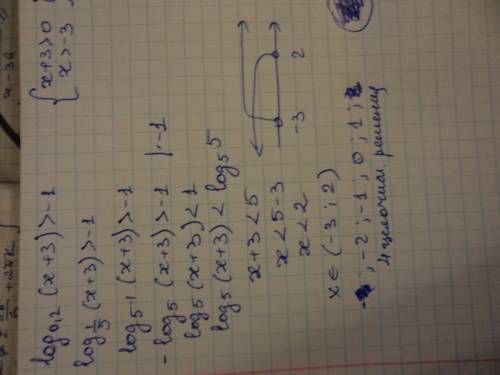 log₀,₂ (x+3) > -1
{ x+3>0
x>-3
log_{1/5} (x+3) > -1
log_{5^{-1}} (x+3) > -1
- log₅ (x+3) > -1 | :-1
log₅ (x+3) < 1
log₅ (x+3) < log₅ 5
x+3 < 5
x < 5-3
x < 2
-3 2
x ∈ (-3 ; 2)
; -2 ; -1 ; 0 ; 1 ;
4 целочисл. решения
x-36
+2πk